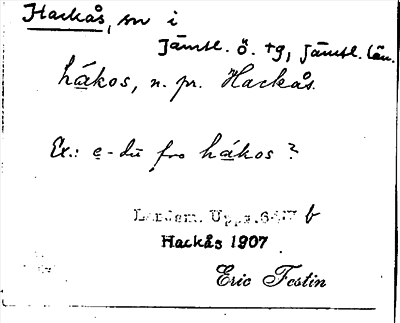 Hackås, sn i
Jämtl. ö. tg, Jämtl. län.
hákos, n. pr. Hackås.
Ex.: e-du fro hákos?
Landsm. Upps. b
Hackås 1907
Eric Festin